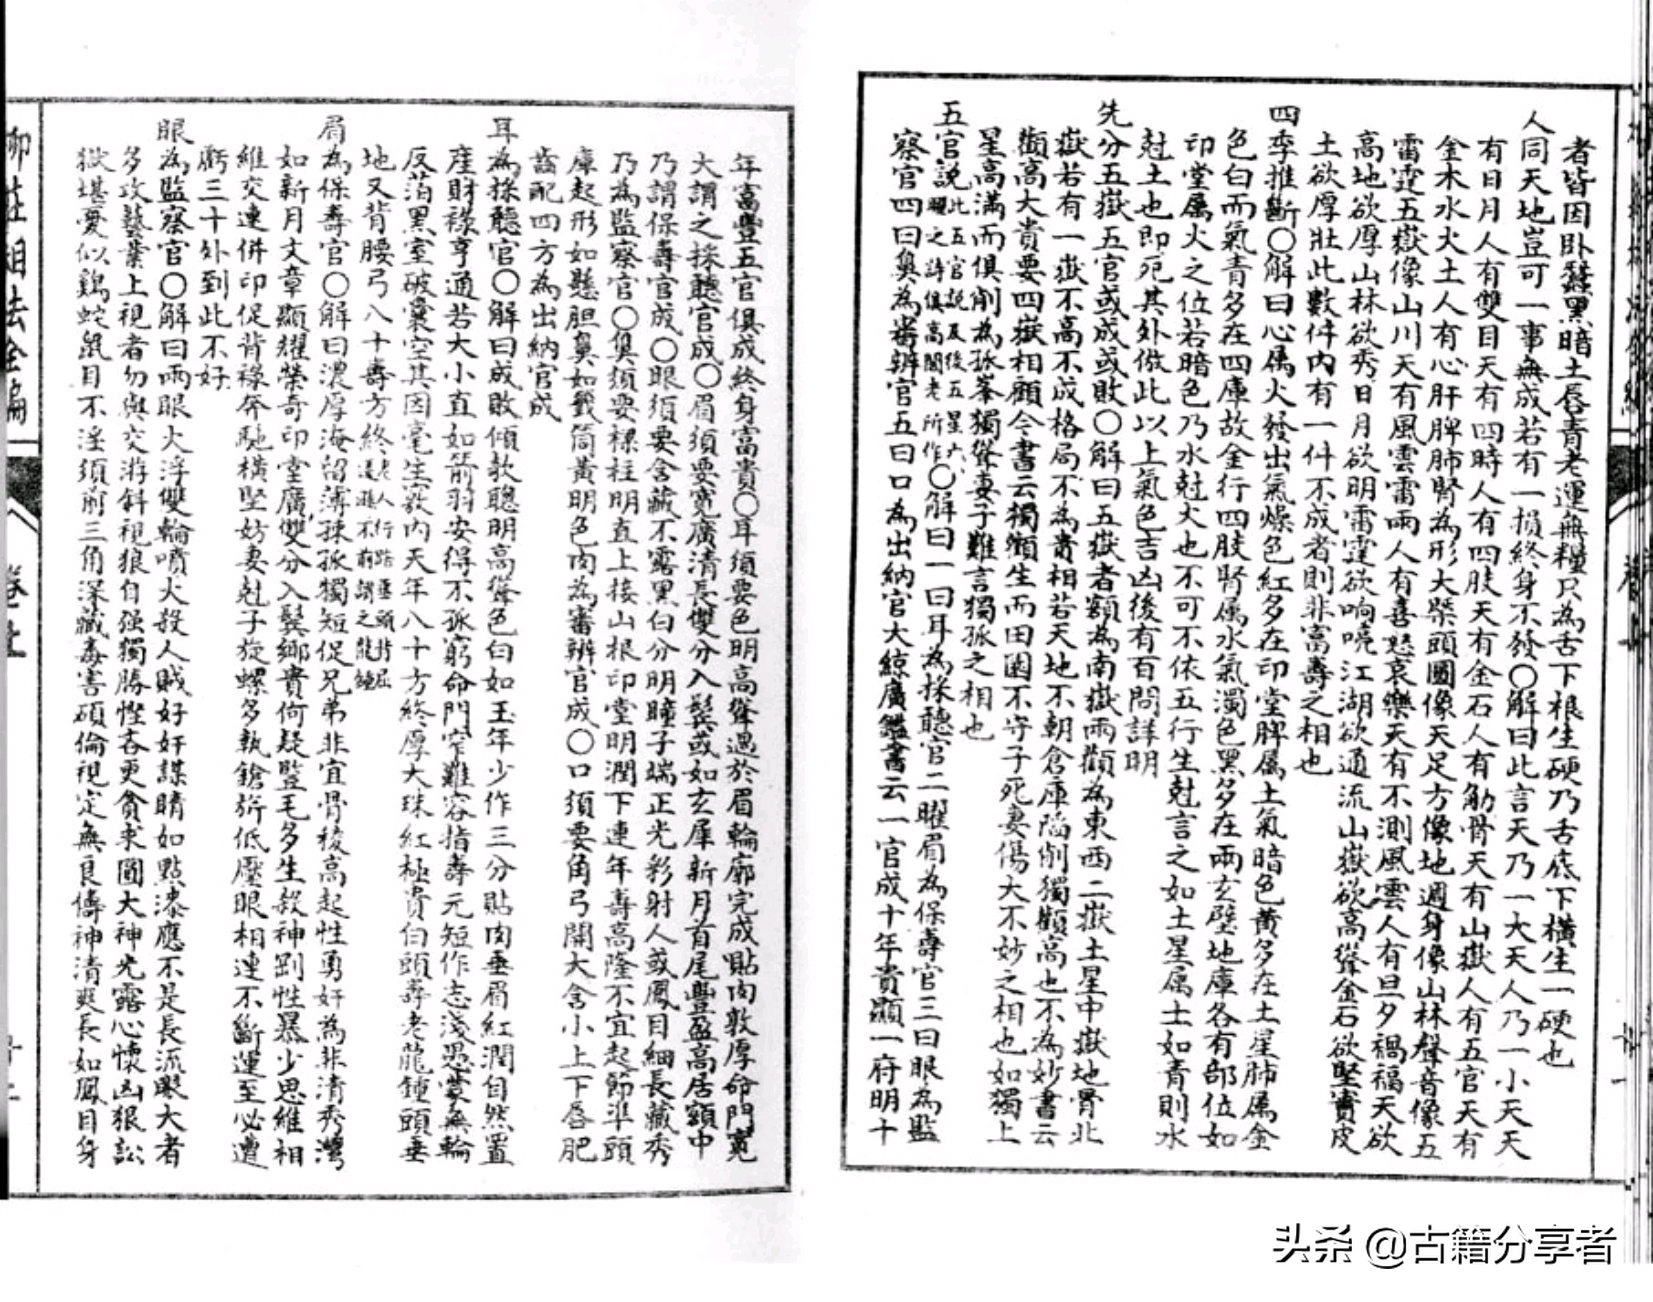 者皆因卧蠶黑暗土唇青老運無糧只為舌下根生硬乃舌底下橫生一硬也
人同天地豈可一事無成若有一損終身不發○解曰此言天乃一大天人乃一小天天
有日月人有雙目天有四時人有四肢天有金石人有觔骨天有山嶽人有五官天有
金木水火土人有心肝脾肺腎為形大槩頭圓像天足方像地週身像山林聲音像五
雷霆五嶽像山川天有風雲雷雨人有喜怒哀樂天有不測風雲人有旦夕禍福天欲
高地欲厚山林欲秀日月欲明雷霆欲响喨江湖欲通流山嶽欲高聳金石欲堅實皮
土欲厚壯此數件內有一件不成者則非富壽之相也
四季推斷○解曰心属火發出氣燥色紅多在印堂脾属土氣暗色黃多在土星肺属金
色白而氣青多在四庫故金行四肢腎属水氣濁色黑多在兩玄壁地庫各有部位如
印堂属火之位若暗色乃水尅火也不可不依五行生尅言之如土星属土如青則水
尅土也即死其外倣此以上氣色吉凶後有百問詳明
先分五嶽五官或成或敗○解曰五嶽者額為南嶽兩顴為東西二嶽土星中嶽地骨北
嶽若有一嶽不高不成格局不為貴相若天地不朝倉庫陷削獨顴高也不為妙書云
顴高大貴要四嶽相顧今書云獨顴生而田園不守子死妻傷大不妙之相也如獨上
星高滿而俱削為孤峯獨聳妻子難言獨孤之相也
五官說此五官說及後五星六曜之詳俱高閣老所作○解曰一曰耳為採聽官二曜眉為保壽官三曰眼為監
察官四曰鼻為審辨官五曰口為出納官大綜廣鑑書云一官成十年貴顯一府明十
年富豐五官俱成終身富貴○耳須要色明高聳過於眉輪廓完成貼肉敦厚命門寬
大謂之採聽官成○眉須要寬廣清長雙分入鬓或如玄犀新月首尾豐盈高居額中
乃謂保壽官成○眼須要含藏不露黑白分明瞳子端正光彩射人或鳳目細長藏秀
乃為監察官○鼻須要樑柱明直上接山根印堂明潤下連年壽高隆不宜起節準頭
庫起形如懸胆鼻如截筒黃明色肉為審辨官成○口須要角弓開大含小上下唇肥
齒配四方為出納官成
耳為採聽官○解曰成敗傾欹聰明高聳色白如玉年少作三分貼肉垂眉紅潤自然置
産財祿亨通若大小直如箭羽安得不孤窮命門窄難容指壽元短作志淺愚蒙無輪
反薄黑室破囊空其因毫生数內天年八十方終厚大珠紅極貴白頭壽老龍鍾頭垂
地又背腰弓八十壽方終老人行路垂頭背屈
眉為保壽官○解曰濃厚淹留薄揀孤獨短促兄弟非宜骨稜高起性勇奸為非清秀灣
如新月文章顯耀榮奇印堂廣雙分入鬓卿貴何疑豎毛多生殺神剛性暴少思維相
維交連併印促背祿奔馳橫堅妨妻尅子旋螺多執鎗旂低壓眼相連不斷運至必遭
虧三十外到此不好
眼為監察官○解曰兩眼大浮雙輪噴火殺人賊好奸謀睛如點漆應不是長流眼大者
多攻藝業上視者勿與交游斜視狼自强獨勝慳吝更貪求圓大神光露心懷凶狠訟
獄堪憂似鷄蛇鼠目不淫須前三角深藏毒害碩倫視定無良儔神清爽長如鳳目身
柳莊相法全編
卷上
头条 @古籍分享者